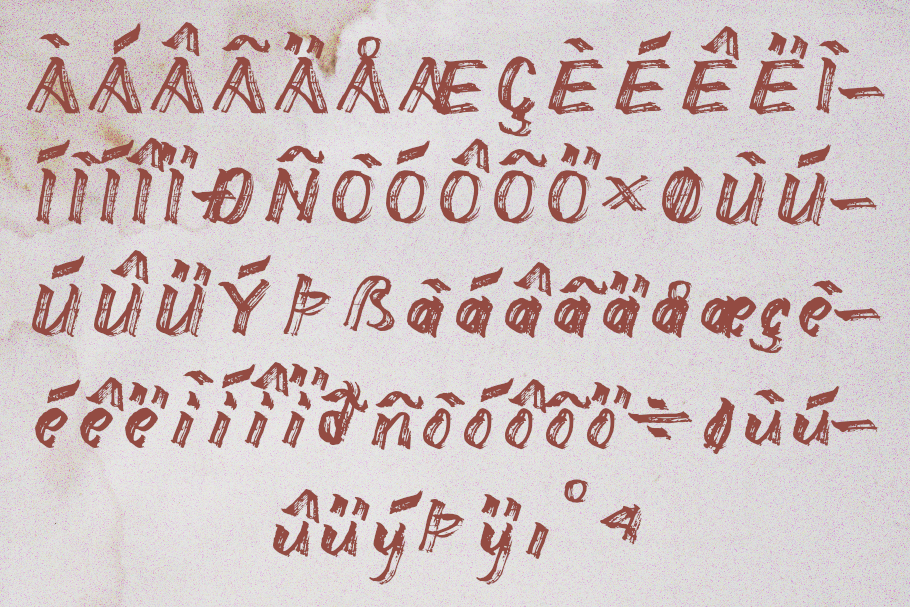 ÀÁÂÃÄÅÆÇÈÉÊËÌ-
ÍÌÍÎÏ-ÐÑÒÓÔÕÖ×ØÙÚ-
ÚÛÜÝÞßàáâãäåæçè-
éêëìíîïðñòóôõö÷øùú-
ûüýÞÿı°